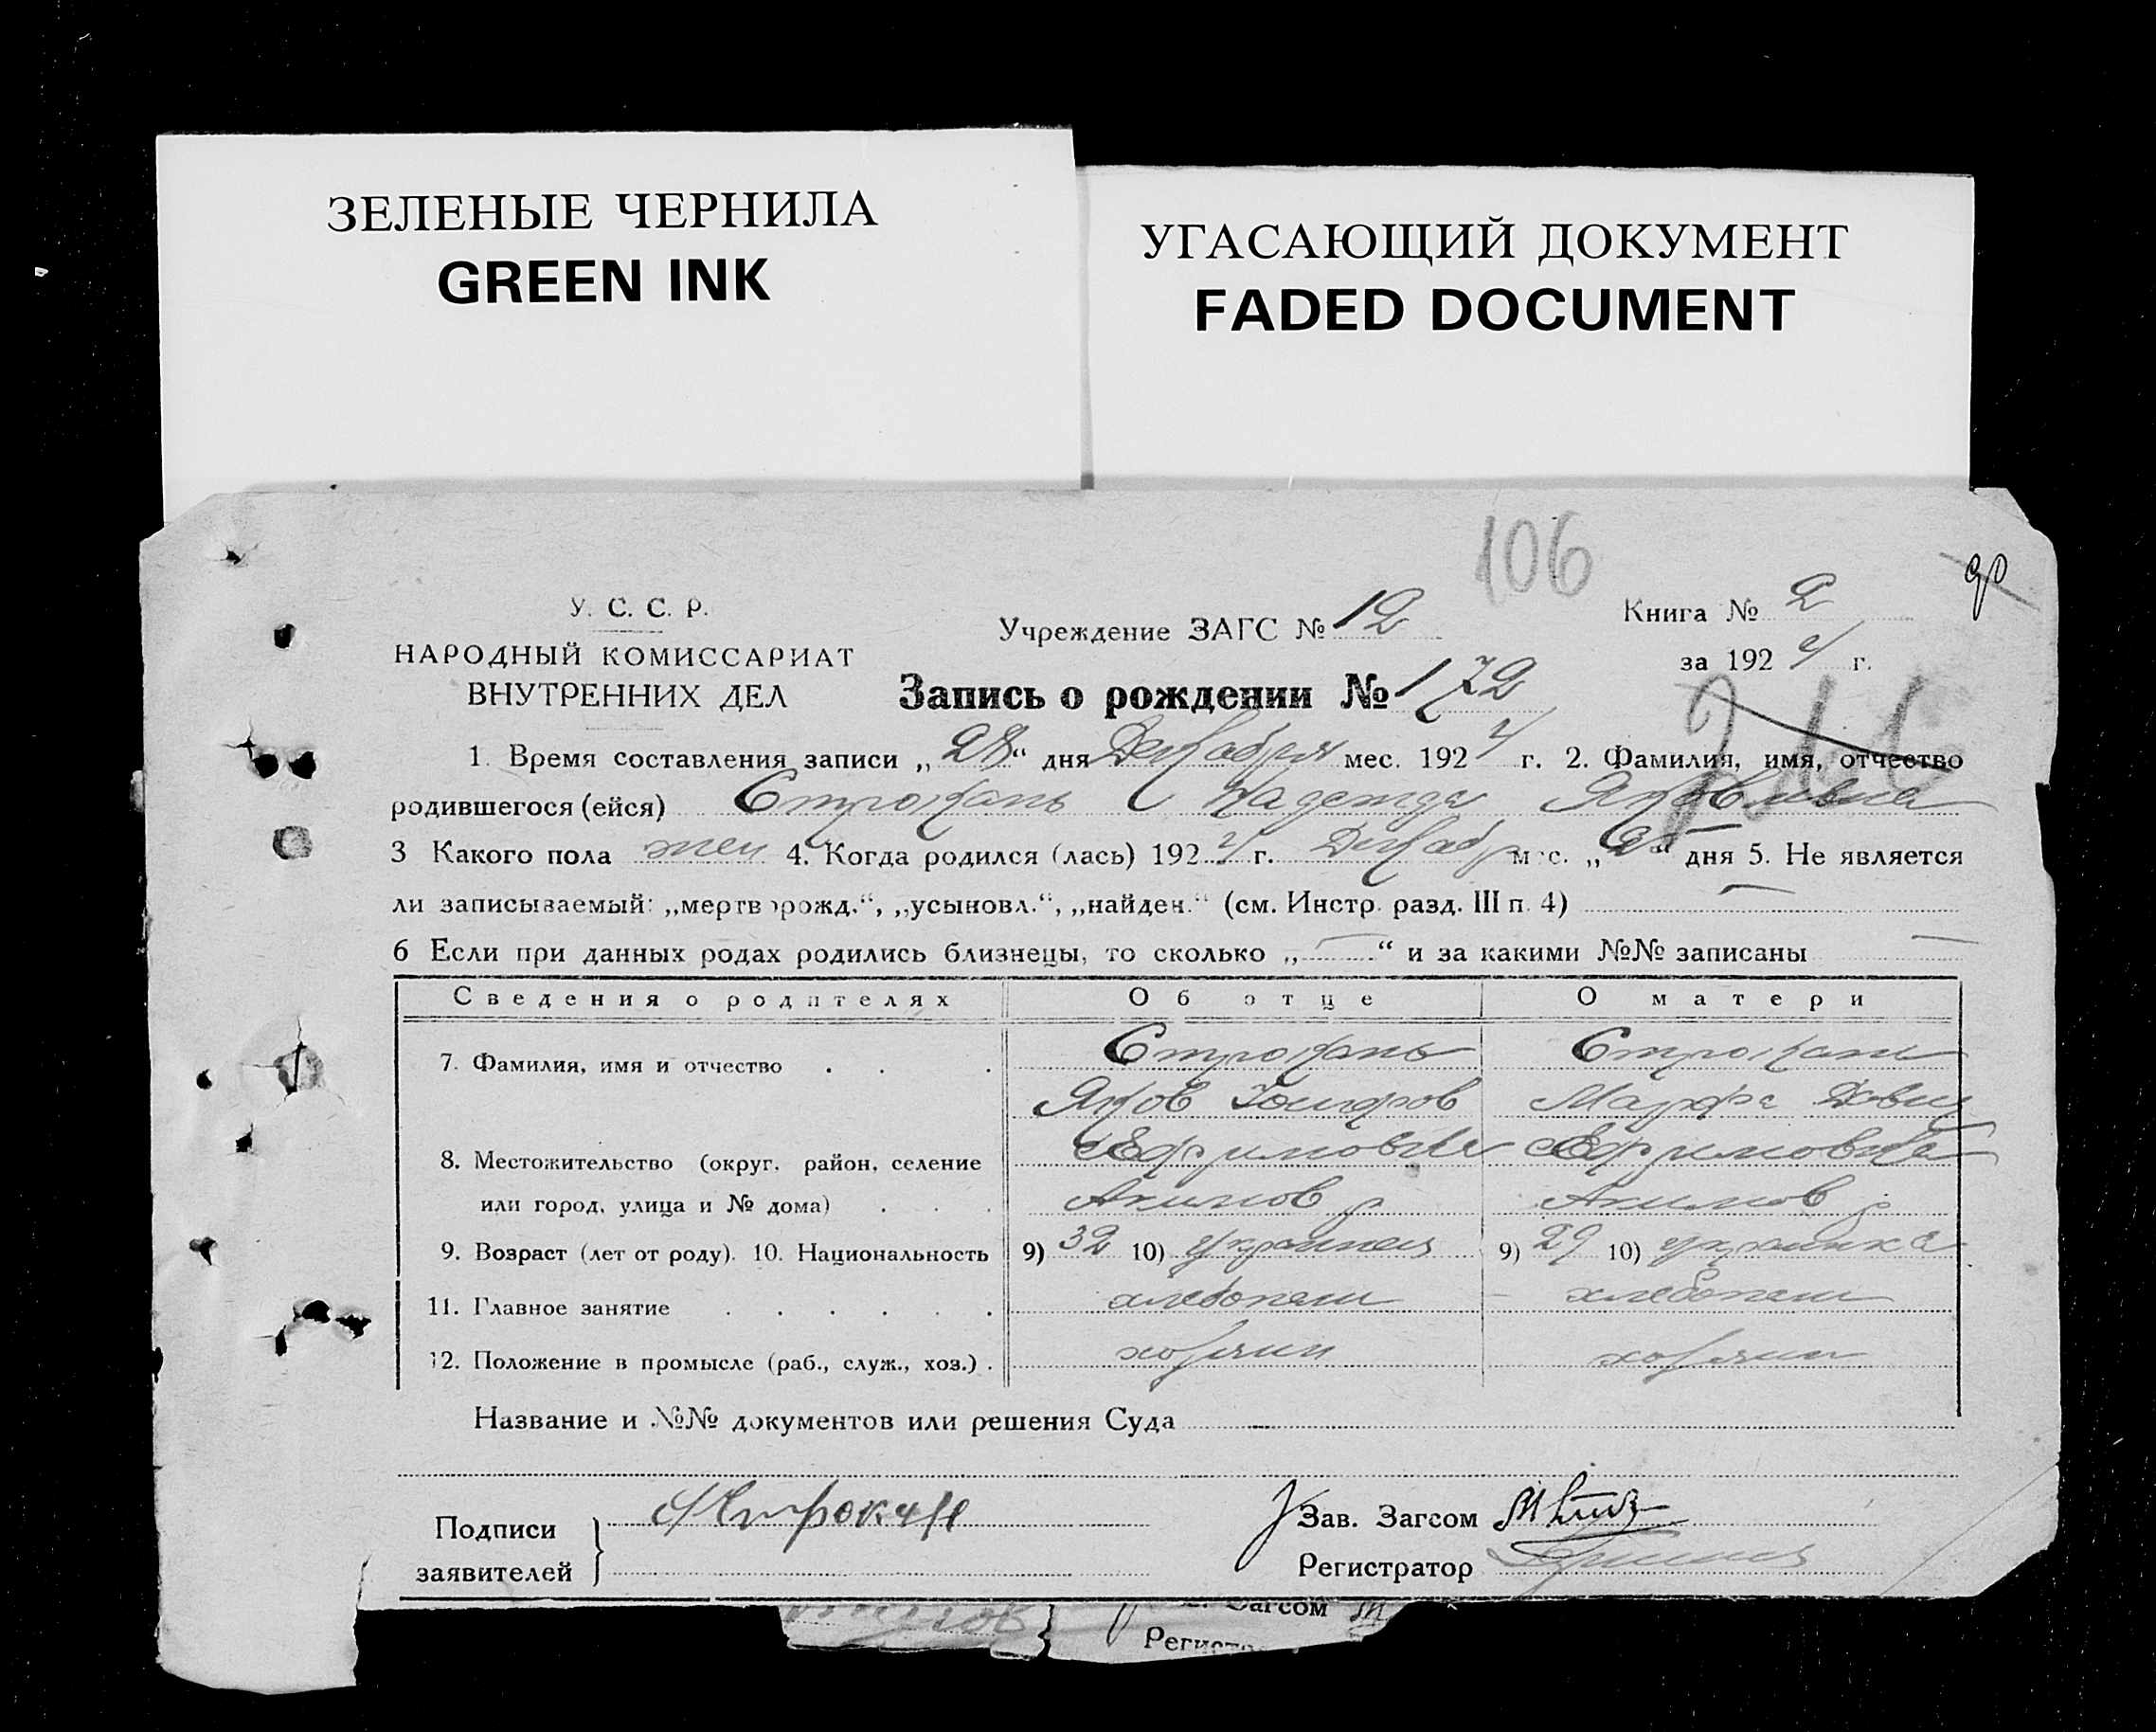 ЗЕЛЕНЫЕ ЧЕРНИЛА
GREEN INK
УГАСАЮЩИЙ ДОКУМЕНТ
FADED DOCUMENT
106
У. С. С. Р.
НАРОДНЫЙ КОМИССАРИАТ
ВНУТРЕННИХ ДЕЛ
Учреждение ЗАГС № 12
Книга № 2
за 1924 г.
Запись о рождении № 172
1. Время составления записи „28“ дня Декабря мес. 1924 г. 2. Фамилия, имя, отчество
родившегося (ейся) Строкань Надежда Яковлевна
3 Какого пола жен 4. Когда родился (лась) 1924 г. Декабр мес. „25“ дня 5. Не является
ли записываемый: „мертворожд.“, „усыновл.“, „найден.“ (см. Инстр. разд. III п. 4) —
6 Если при данных родах родились близнецы, то сколько „—“ и за какими №№ записаны —
Сведения о родителях Об отце О матери
7. Фамилия, имя и отчество Строкань Строкань
Яков Марфа
8. Местожительство (округ. район, селение Ефимовка Ефимовка
или город, улица и № дома) Акимов р Акимов р
9. Возраст (лет от роду). 10. Национальность 9) 32 10) украинец 9) 29 10) украинка
11. Главное занятие хлебопаш хлебопаш
12. Положение в промысле (раб., служ., хоз.) хозяин хозяин
Название и №№ документов или решения Суда —
Подписи
заявителей
Зав. Загсом
Регистратор
Загсом